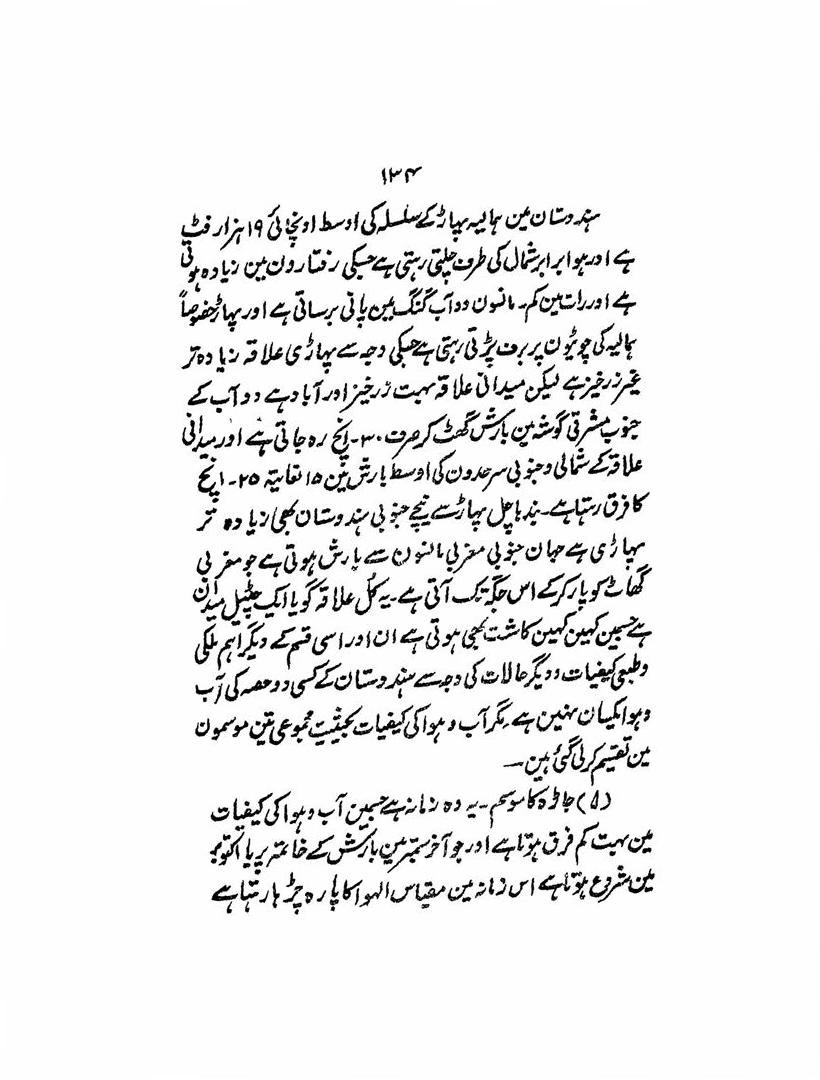 ۱۳۴
ہندوستان مین ہمالیہ پہاڑ کے سلسلہ کی اوسط اونچائی ۱۹ ہزار فٹ
ہے اور ہوا برابر شمال کی طرف چلتی رہتی ہے جسکی رفتار ون مین زیادہ ہوتی
ہے اور رات مین کم۔ مانسون دوآب گنگ مین پانی برساتی ہے اور پہاڑ خصوصاً
ہمالیہ کی چوٹیون پر برف پڑتی رہتی ہے جسکی وجہ سے پہاڑی علاقہ زیادہ تر
غیر زرخیز ہے لیکن میدانی علاقہ بہت زرخیز اور آباد ہے دوآب کے
جنوب مشرقی گوشہ مین بارش گھٹ کر صرف ۳۰۔ انچ رہ جاتی ہے اور میدانی
علاقہ کے شمالی و جنوبی سرحدون کی اوسط بارش مین ۱۵ لغایۃ ۲۵۔ انچ
کا فرق رہتا ہے۔ بندہاچل پہاڑ سے نیچے جنوبی ہندوستان بھی زیادہ تر
پہاڑی ہے جہان جنوبی مغربی مانسون سے بارش ہوتی ہے جو مغربی
گھاٹ کو پار کرکے اس جگہ تک آتی ہے۔ یہ کل علاقہ گویا ایک چٹیل میدان
ہے جسمین کہین کہین کاشت بھی ہوتی ہے ان اور اسی قسم کے دیگر اہم ملکی
و طبعی کیفیات و دیگر حالات کی وجہ سے ہندوستان کے کسی دو حصہ کی آب
و ہوا یکسان نہین ہے۔ مگر آب و ہوا کی کیفیات بحیثیت مجموعی تین موسمون
مین تقسیم کرلی گئی ہین۔
(۱) جاڑہ کا موسم۔ یہ وہ زمانہ ہے جسمین آب و ہوا کی کیفیات
مین بہت کم فرق ہوتا ہے اور جو آخر ستمبر مین بارش کے خاتمہ پر یا اکتوبر
مین شروع ہوتا ہے اس زمانہ مین مقیاس الہوا کا پارہ چڑہا رہتا ہے